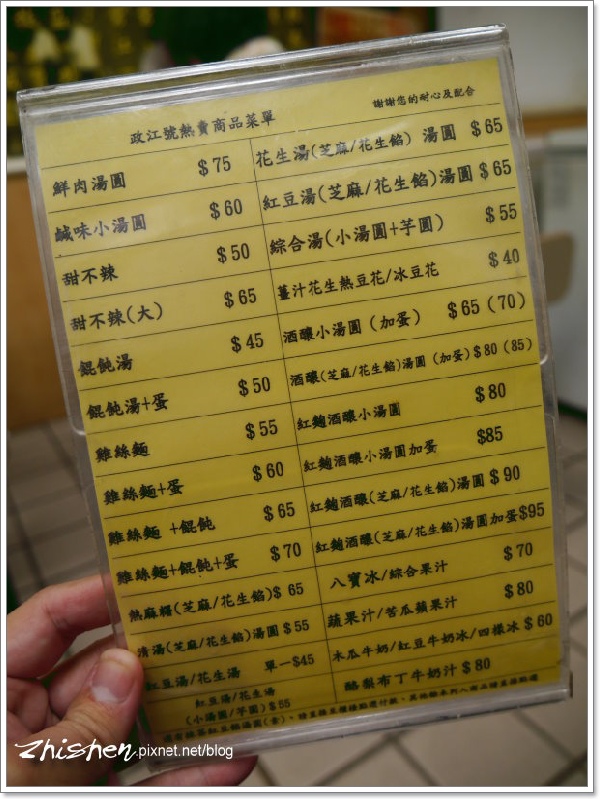 政江號熱賣商品菜單
謝謝您的耐心及配合
鮮肉湯圓 $75
鹹味小湯圓 $60
甜不辣 $50
甜不辣(大) $65
餛飩湯 $45
餛飩湯+蛋 $50
雞絲麵 $55
雞絲麵+蛋 $60
雞絲麵 +餛飩 $65
雞絲麵+餛飩+蛋 $70
熱麻糬(芝麻/花生餡)$ 65
清湯(芝麻/花生餡)湯圓 $55
紅豆湯/花生湯 單一$45
紅豆湯/花生湯
(小湯圓/芋圓) $55
花生湯(芝麻/花生餡) 湯圓 $65
紅豆湯(芝麻/花生餡)湯圓 $65
綜合湯(小湯圓+芋圓) $55
薑汁花生熱豆花/冰豆花 $40
酒釀小湯圓 (加蛋) $65 (70)
酒釀(芝麻/花生餡)湯圓 (加蛋)$80 (85)
紅麴酒釀小湯圓 $80
紅麴酒釀小湯圓加蛋 $85
紅麴酒釀(芝麻/花生餡)湯圓 $90
紅麴酒釀(芝麻/花生餡)湯圓加蛋$95
八寶冰/綜合果汁 $70
蔬果汁/苦瓜蘋果汁 $80
木瓜牛奶/紅豆牛奶冰/四樣冰 $60
酪梨布丁牛奶汁 $80
zhishen.pixnet.net/blog